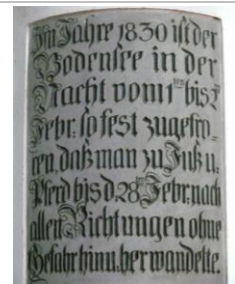 Im Jahre 1830 ist der
Bodensee in der
Nacht vom 1ten bis 2
Febr: so fest zugefro-
ren daß man zu Fuß u.
Pferd bis d. 28 Febr: nach
allen Richtungen ohne
Gefahr hinu. her wandelte.